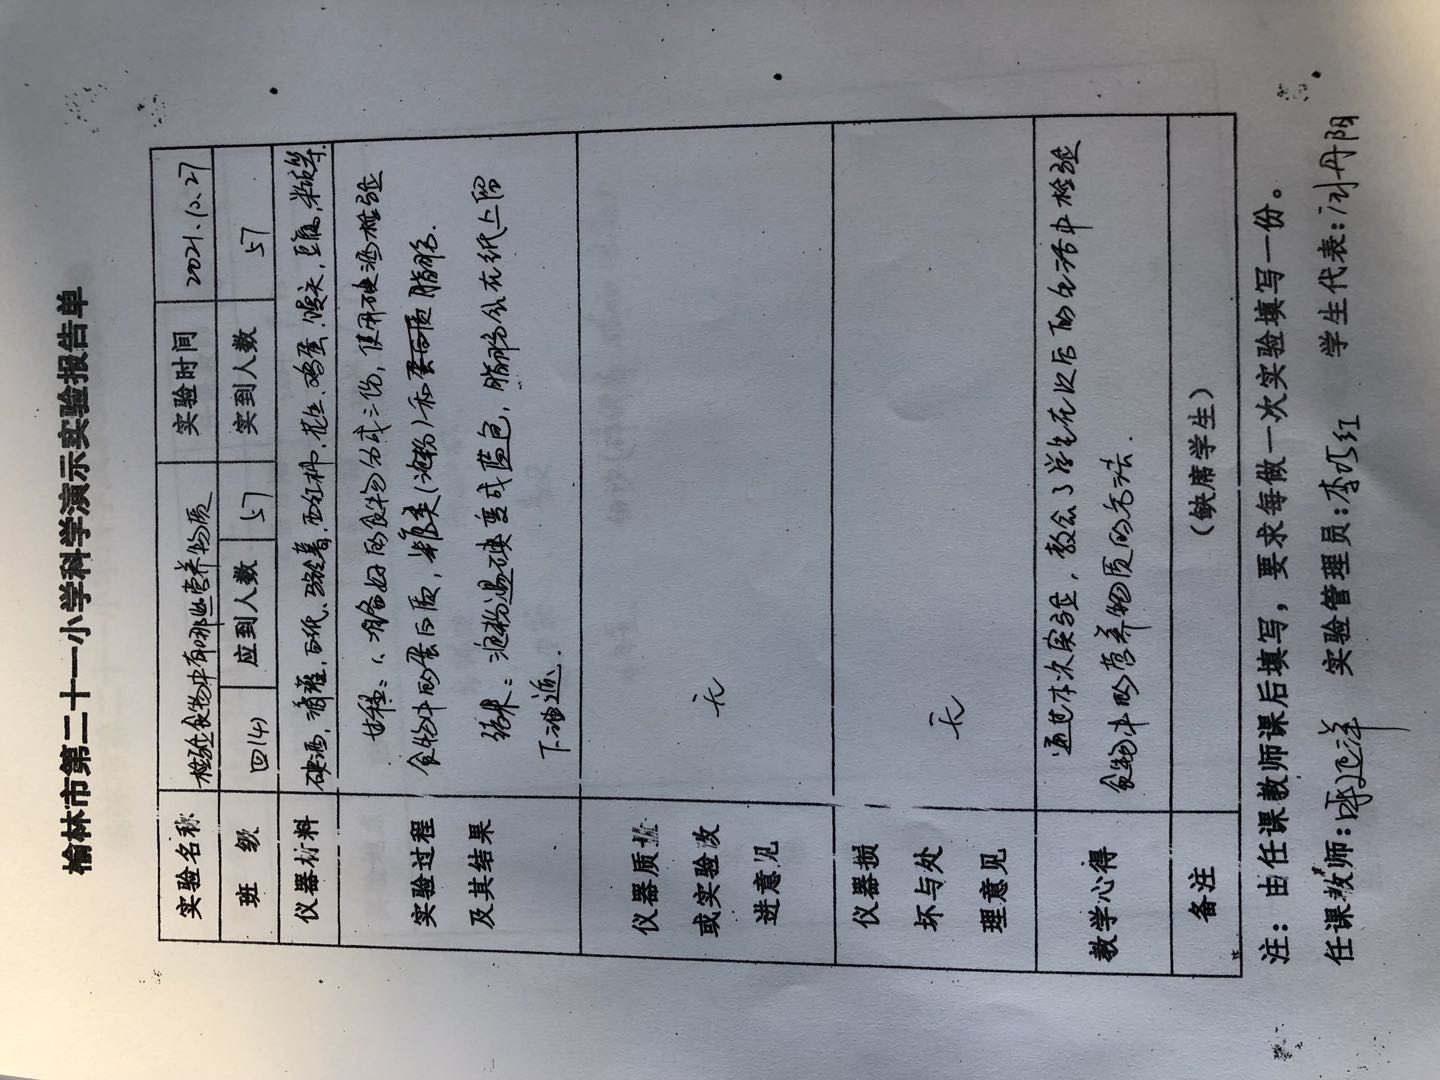 榆林市第二十一小学科学演示实验报告单
实验名称 检验食物中有哪些营养物质 实验时间 2021.12.27
班 级 四(4) 应到人数 57 实到人数 57
仪器材料 碘酒,滴管,白纸、西红柿、花生、鸡蛋、馒头,豆腐,米饭等.
实验过程及其结果
过程:1、准备好的食物分成三份,使用碘酒检验
食物中的蛋白质,糖类(淀粉)和脂肪.
结果:淀粉遇碘变成蓝色,脂肪会在纸上留
下油迹.
仪器质量或实验改进意见 无
仪器损坏与处理意见 无
教学心得
通过本次实验,教会了学生在以后的生活中检验
食物中的营养物质的方法.
备注 (缺席学生)
注:由任课教师课后填写,要求每做一次实验填写一份。
任课教师: 实验管理员:李巧红 学生代表:刘丹阳